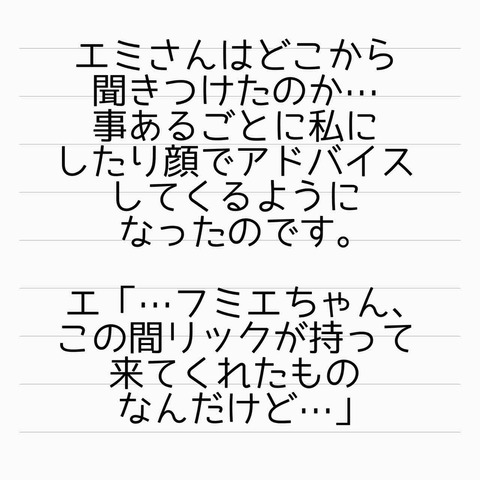 エミさんはどこから
聞きつけたのか…
事あるごとに私に
したり顔でアドバイス
してくるように
なったのです。
エ「…フミエちゃん、
この間リックが持って
来てくれたもの
なんだけど…」